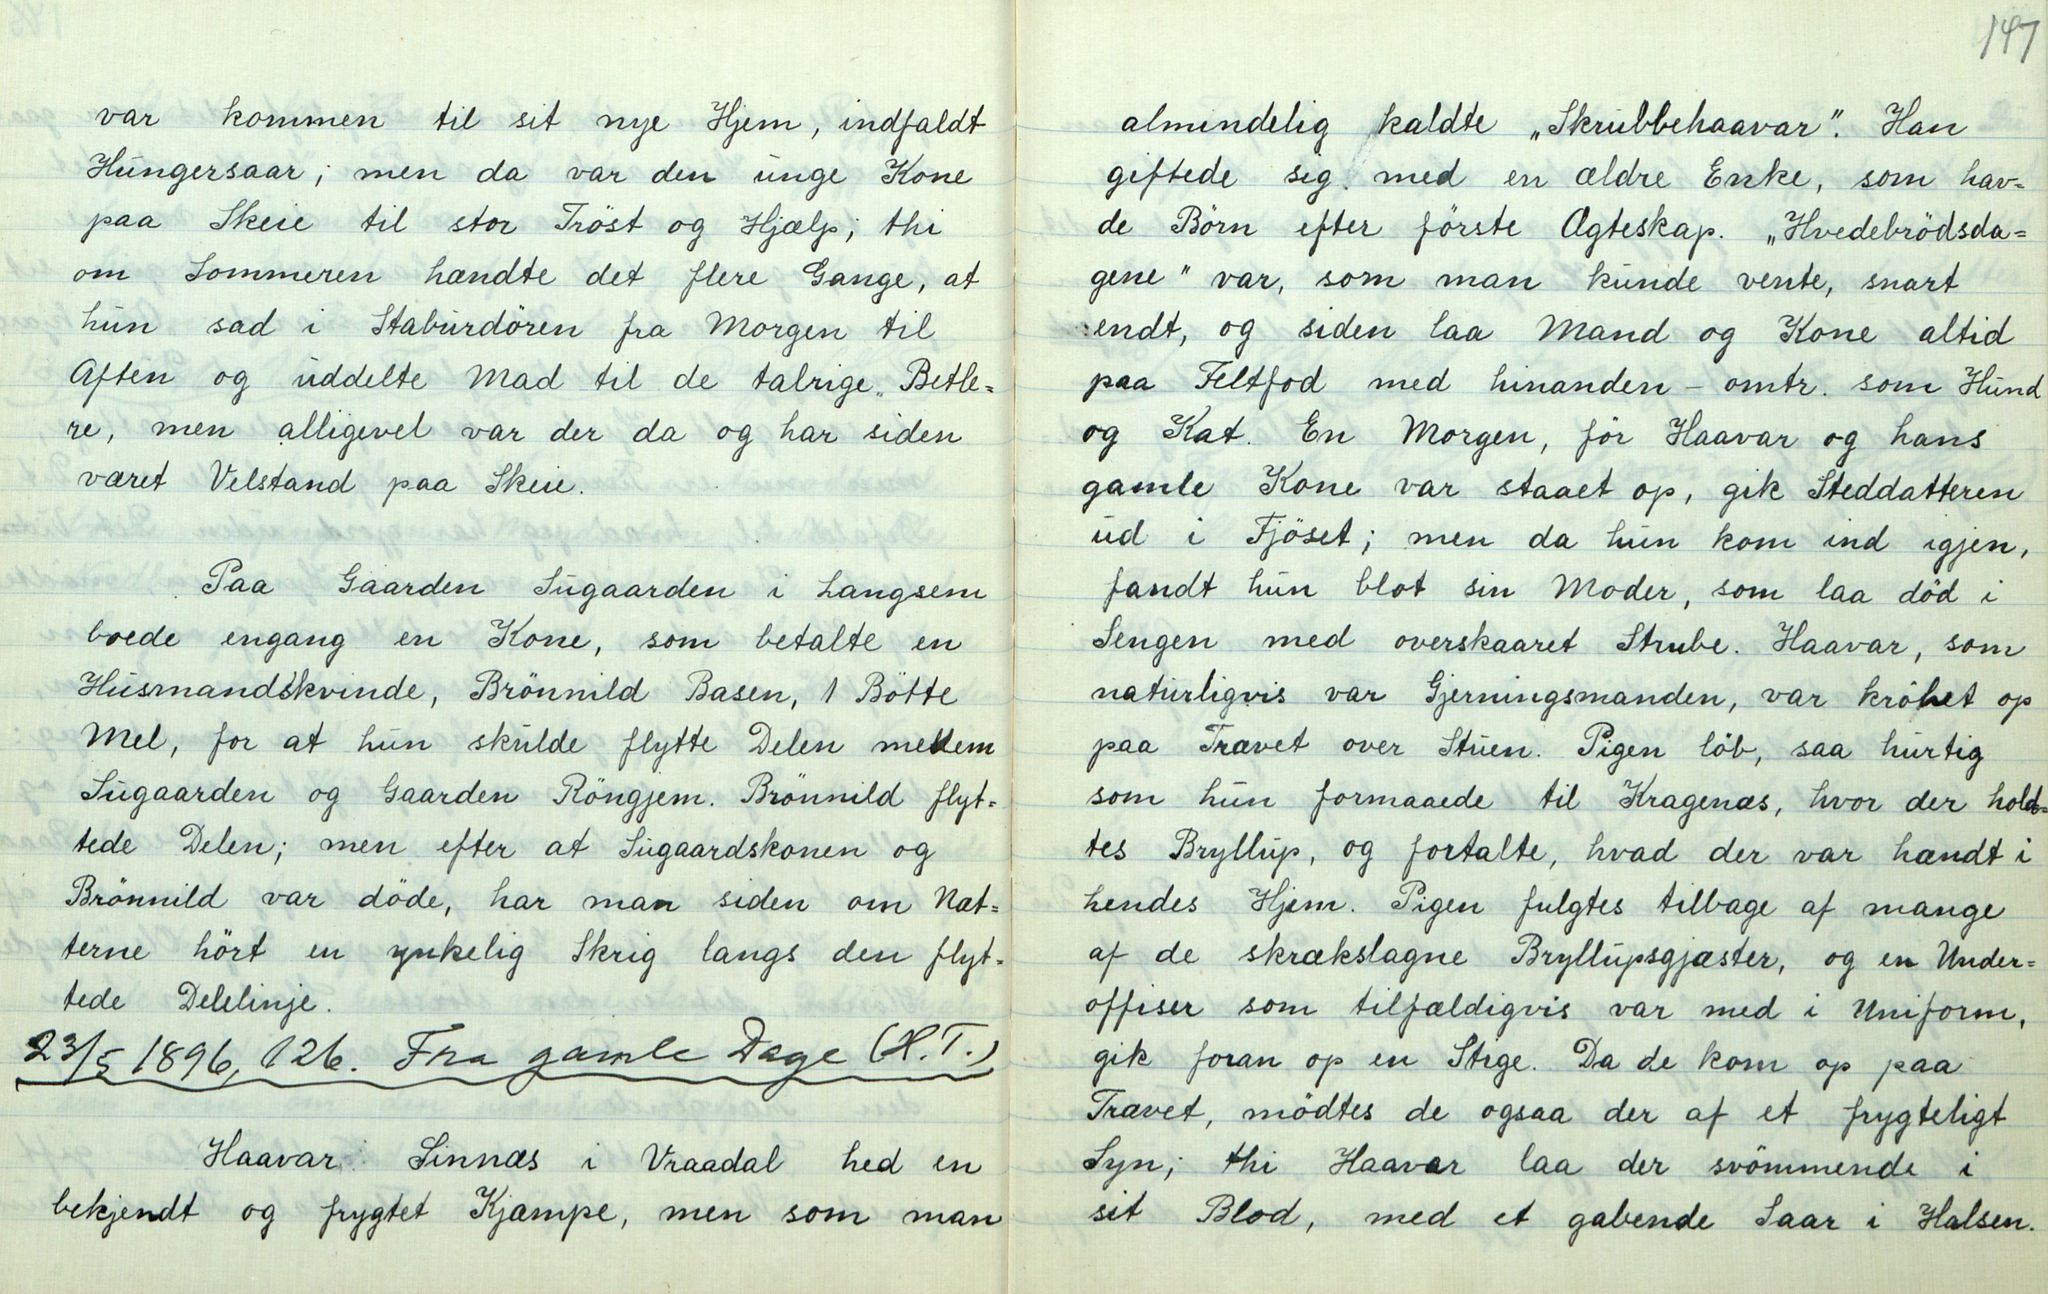 var kommen til sit nye Hjem, indfaldt
Hungersaar; men da var den unge Kone
paa Skeie til stor Tröst og Hjælp; thi
om Sommeren hændte det flere Gange, at
hun sad i Stabursdören fra Morgen til
Aften og uddelte Mad til de talrige Betle=
re, men alligevel var der da og har siden
været Velstand paa Skeie.
Paa Gaarden Sugaarden i Langsem
boede engang en Kone, som betalte en
Husmandskvinde, Brönnild Basen, 1 Bötte
Mel, for at hun skulde flytte Delen mellem
Sugaarden og Gaarden Röngjem. Brönnild flyt=
tede Delen; men efter at Sugaardskonen og
Brönnild var döde, har man siden om Næt=
terne hört en ynkelig Skrig langs den flyt=
tede Delelinje.
23/5 1896, 126. Fra gamle Dage (H.T.)
Haavar Sinnæs i Vraadal hed en
bekjendt og frygtet Kjæmpe, men som man
147
almindelig kaldte „Skrubbehaavar". Han
giftede sig med en ældre Enke, som hav=
de Börn efter förste Ægteskap. „Hvedebrödsda=
gene" var, som man kunde vente, snart
endt, og siden laa Mand og Kone altid
paa Feltfod med hinanden - omtr. som Hund
og Kat. En Morgen, för Haavar og hans
gamle Kone var staaet op, gik Steddatteren
ud i Fjöset; men da hun kom ind igjen,
fandt hun blot sin Moder, som laa död i
Sengen med overskaaret Strube. Haavar, som
naturligvis var Gjerningsmanden, var kröbet op
paa Travet over Stuen. Pigen löb, saa hurtig
som hun formaaede til Kragenæs, hvor der hold=
tes Bryllup, og fortalte, hvad der var hændt i
hendes Hjem. Pigen fulgtes tilbage af mange
af de skrækslagne Bryllupsgjæster, og en Under=
offiser som tilfældigvis var med i Uniform,
gik foran op en Stige. Da de kom op paa
Travet, mödtes de ogsaa der af et frygteligt
Syn; thi Haavar laa der svömmende i
sit Blod, med et gabende Saar i Halsen.